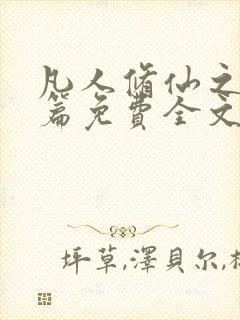 凡人脩仙之
篇免費全文
坪草,澤貝尔,